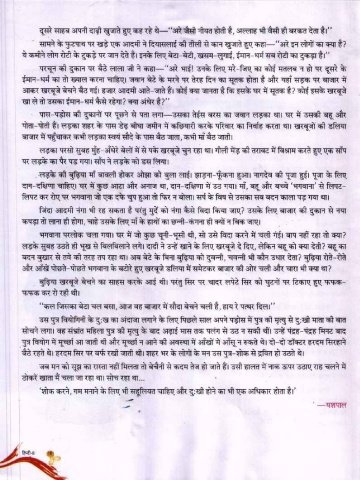 दूसरे साहब अपनी दाढ़ी खुजाते हुए कह रहे थे—‘‘अरे जैसी नीयत होती है, अल्लाह भी वैसी ही बरकत देता है।’’
सामने के फुटपाथ पर खड़े एक आदमी ने दियासलाई की तीली से कान खुजाते हुए कहा—‘‘अरे इन लोगों का क्या है?
ये कमीने लोग रोटी के टुकड़े पर जान देते हैं। इनके लिए बेटा-बेटी, खसम-लुगाई, ईमान-धर्म सब रोटी का टुकड़ा है।’’
परचून की दुकान पर बैठे लाला जी ने कहा—‘‘अरे भाई! उनके लिए मरे-जिए का कोई मतलब न हो पर दूसरे के
ईमान-धर्म का तो ख्याल करना चाहिए! जवान बेटे के मरने पर तेरह दिन का सूतक होता है और यहाँ सड़क पर बाजार में
आकर खरबूजे बेचने बैठ गई। हजार आदमी आते-जाते हैं। कोई क्या जानता है कि इसके घर में सूतक है? कोई इसके खरबूजे
खा ले तो उसका ईमान-धर्म कैसे रहेगा? क्या अंधेर है?’’
पास-पड़ोस की दुकानों पर पूछने से पता लगा—उसका तेईस बरस का जवान लड़का था। घर में उसकी बहू और
पोता-पोती हैं। लड़का शहर के पास डेढ़ बीघा जमीन में कछियारी करके परिवार का निर्वाह करता था। खरबूजों की डलिया
बाजार में पहुँचाकर कभी लड़का स्वयं सौदे के पास बैठ जाता, कभी माँ बैठ जाती।
लड़का परसों सुबह मुँह-अँधेरे बेलों में से पके खरबूजे चुन रहा था। गीली मेंड़ की तरावट में विश्राम करते हुए एक साँप
पर लड़के का पैर पड़ गया। साँप ने लड़के को डस लिया।
लड़के की बुढ़िया माँ बावली होकर ओझा को बुला लाई। झाड़ना-फूँकना हुआ। नागदेव की पूजा हुई। पूजा के लिए
दान-दक्षिणा चाहिए। घर में कुछ आटा और अनाज था, दान-दक्षिणा में उठ गया। माँ, बहू और बच्चे ‘भगवाना’ से लिपट-
लिपट कर रोए पर भगवाना जो एक दफे चुप हुआ तो फिर न बोला। सर्प के विष से उसका सब बदन काला पड़ गया था।
जिंदा आदमी नंगा भी रह सकता है परंतु मुर्दे को नंगा कैसे विदा किया जाए? उसके लिए बाजार की दुकान से नया
कपड़ा तो लाना ही होगा, चाहे उसके लिए माँ के हाथों का छन्नी-कंगना ही क्यों न बिक जाए।
भगवाना परलोक चला गया। घर में जो कुछ चूनी-भूसी थी, सो उसे विदा करने में चली गई। बाप नहीं रहा तो क्या?
लड़के सुबह उठते ही भूख से बिलबिलाने लगे। दादी ने उन्हें खाने के लिए खरबूजे दे दिए, लेकिन बहू को क्या देती? बहू का
बदन बुखार से तवे की तरह तप रहा था। अब बेटे के बिना बुढ़िया को दुवन्नी, चवन्नी भी कौन उधार देता? बुढ़िया रोते-रोते
और आँखें पोंछते-पोंछते भगवाना के बटोरे हुए खरबूजे डलिया में समेटकर बाजार की ओर चली और चारा भी क्या था?
बुढ़िया खरबूजे बेचने का साहस करके आई थी। परंतु सिर पर चादर लपेटे सिर को घुटनों पर टिकाए हुए फफक-
फफक कर रो रही थी।
‘‘कल जिसका बेटा चल बसा, आज वह बाजार में सौदा बेचने चली है, हाय रे पत्थर दिल।’’
उस पुत्र वियोगिनी के दुःख का अंदाजा लगाने के लिए पिछले साल अपने पड़ोस में पुत्र की मृत्यु से दुःखी माता की बात
सोचने लगा। वह संभ्रांत महिला पुत्र की मृत्यु के बाद अढ़ाई मास तक पलंग से उठ न सकी थी। उन्हें पंद्रह-पंद्रह मिनट बाद
पुत्र वियोग में मूर्च्छा आ जाती थी और मूर्च्छा न आने की अवस्था में आँखों में आँसू न रुकते थे। दो-दो डॉक्टर हरदम सिरहाने
बैठे रहते थे। हरदम सिर पर बर्फ रखी जाती थी। शहर भर के लोगों के मन उस पुत्र-शोक से द्रवित हो उठते थे।
जब मन को सूझ का रास्ता नहीं मिलता तो बेचैनी से कदम तेज हो जाते हैं। उसी हालत में नाक ऊपर उठाए राह चलने में
ठोकरें खाता मैं चला जा रहा था। सोच रहा था...
‘शोक करने, गम मनाने के लिए भी सहूलियत चाहिए और दुःखी होने का भी एक अधिकार होता है।’
—यशपाल
हिन्दी-8